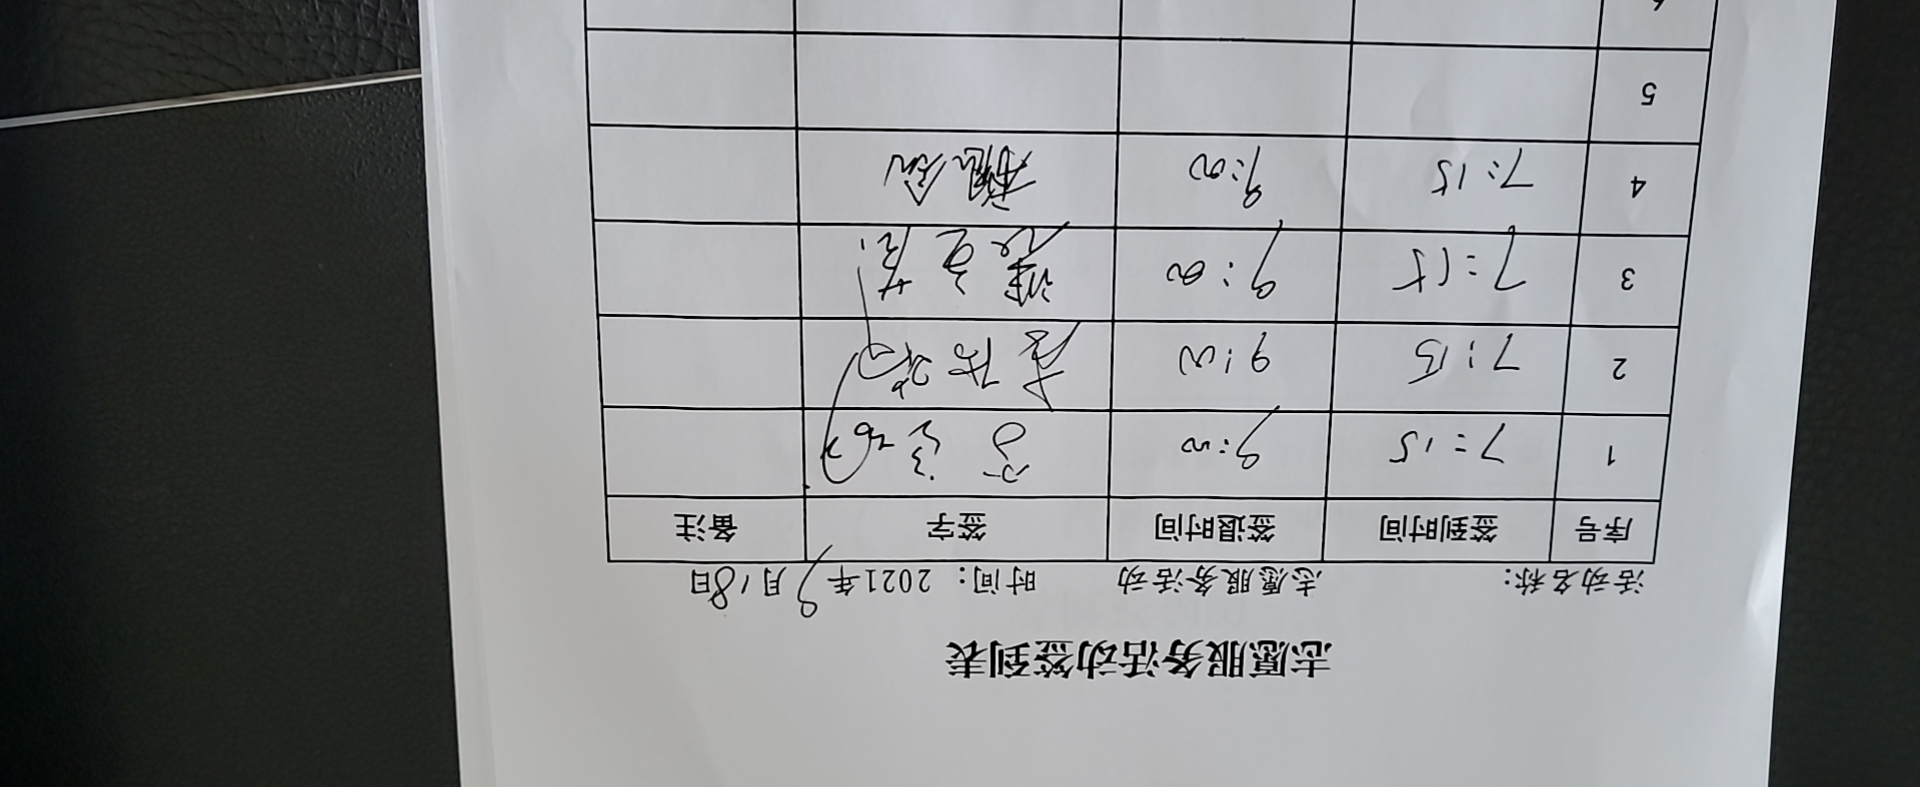 志愿服务活动签到表
活动名称： 志愿服务活动 时间：2021年9月18日
序号 签到时间 签退时间 签字 备注
1 7:15 9:00
2 7:15 9:00
3 7:15 9:00
4 7:15 9:00
5
6